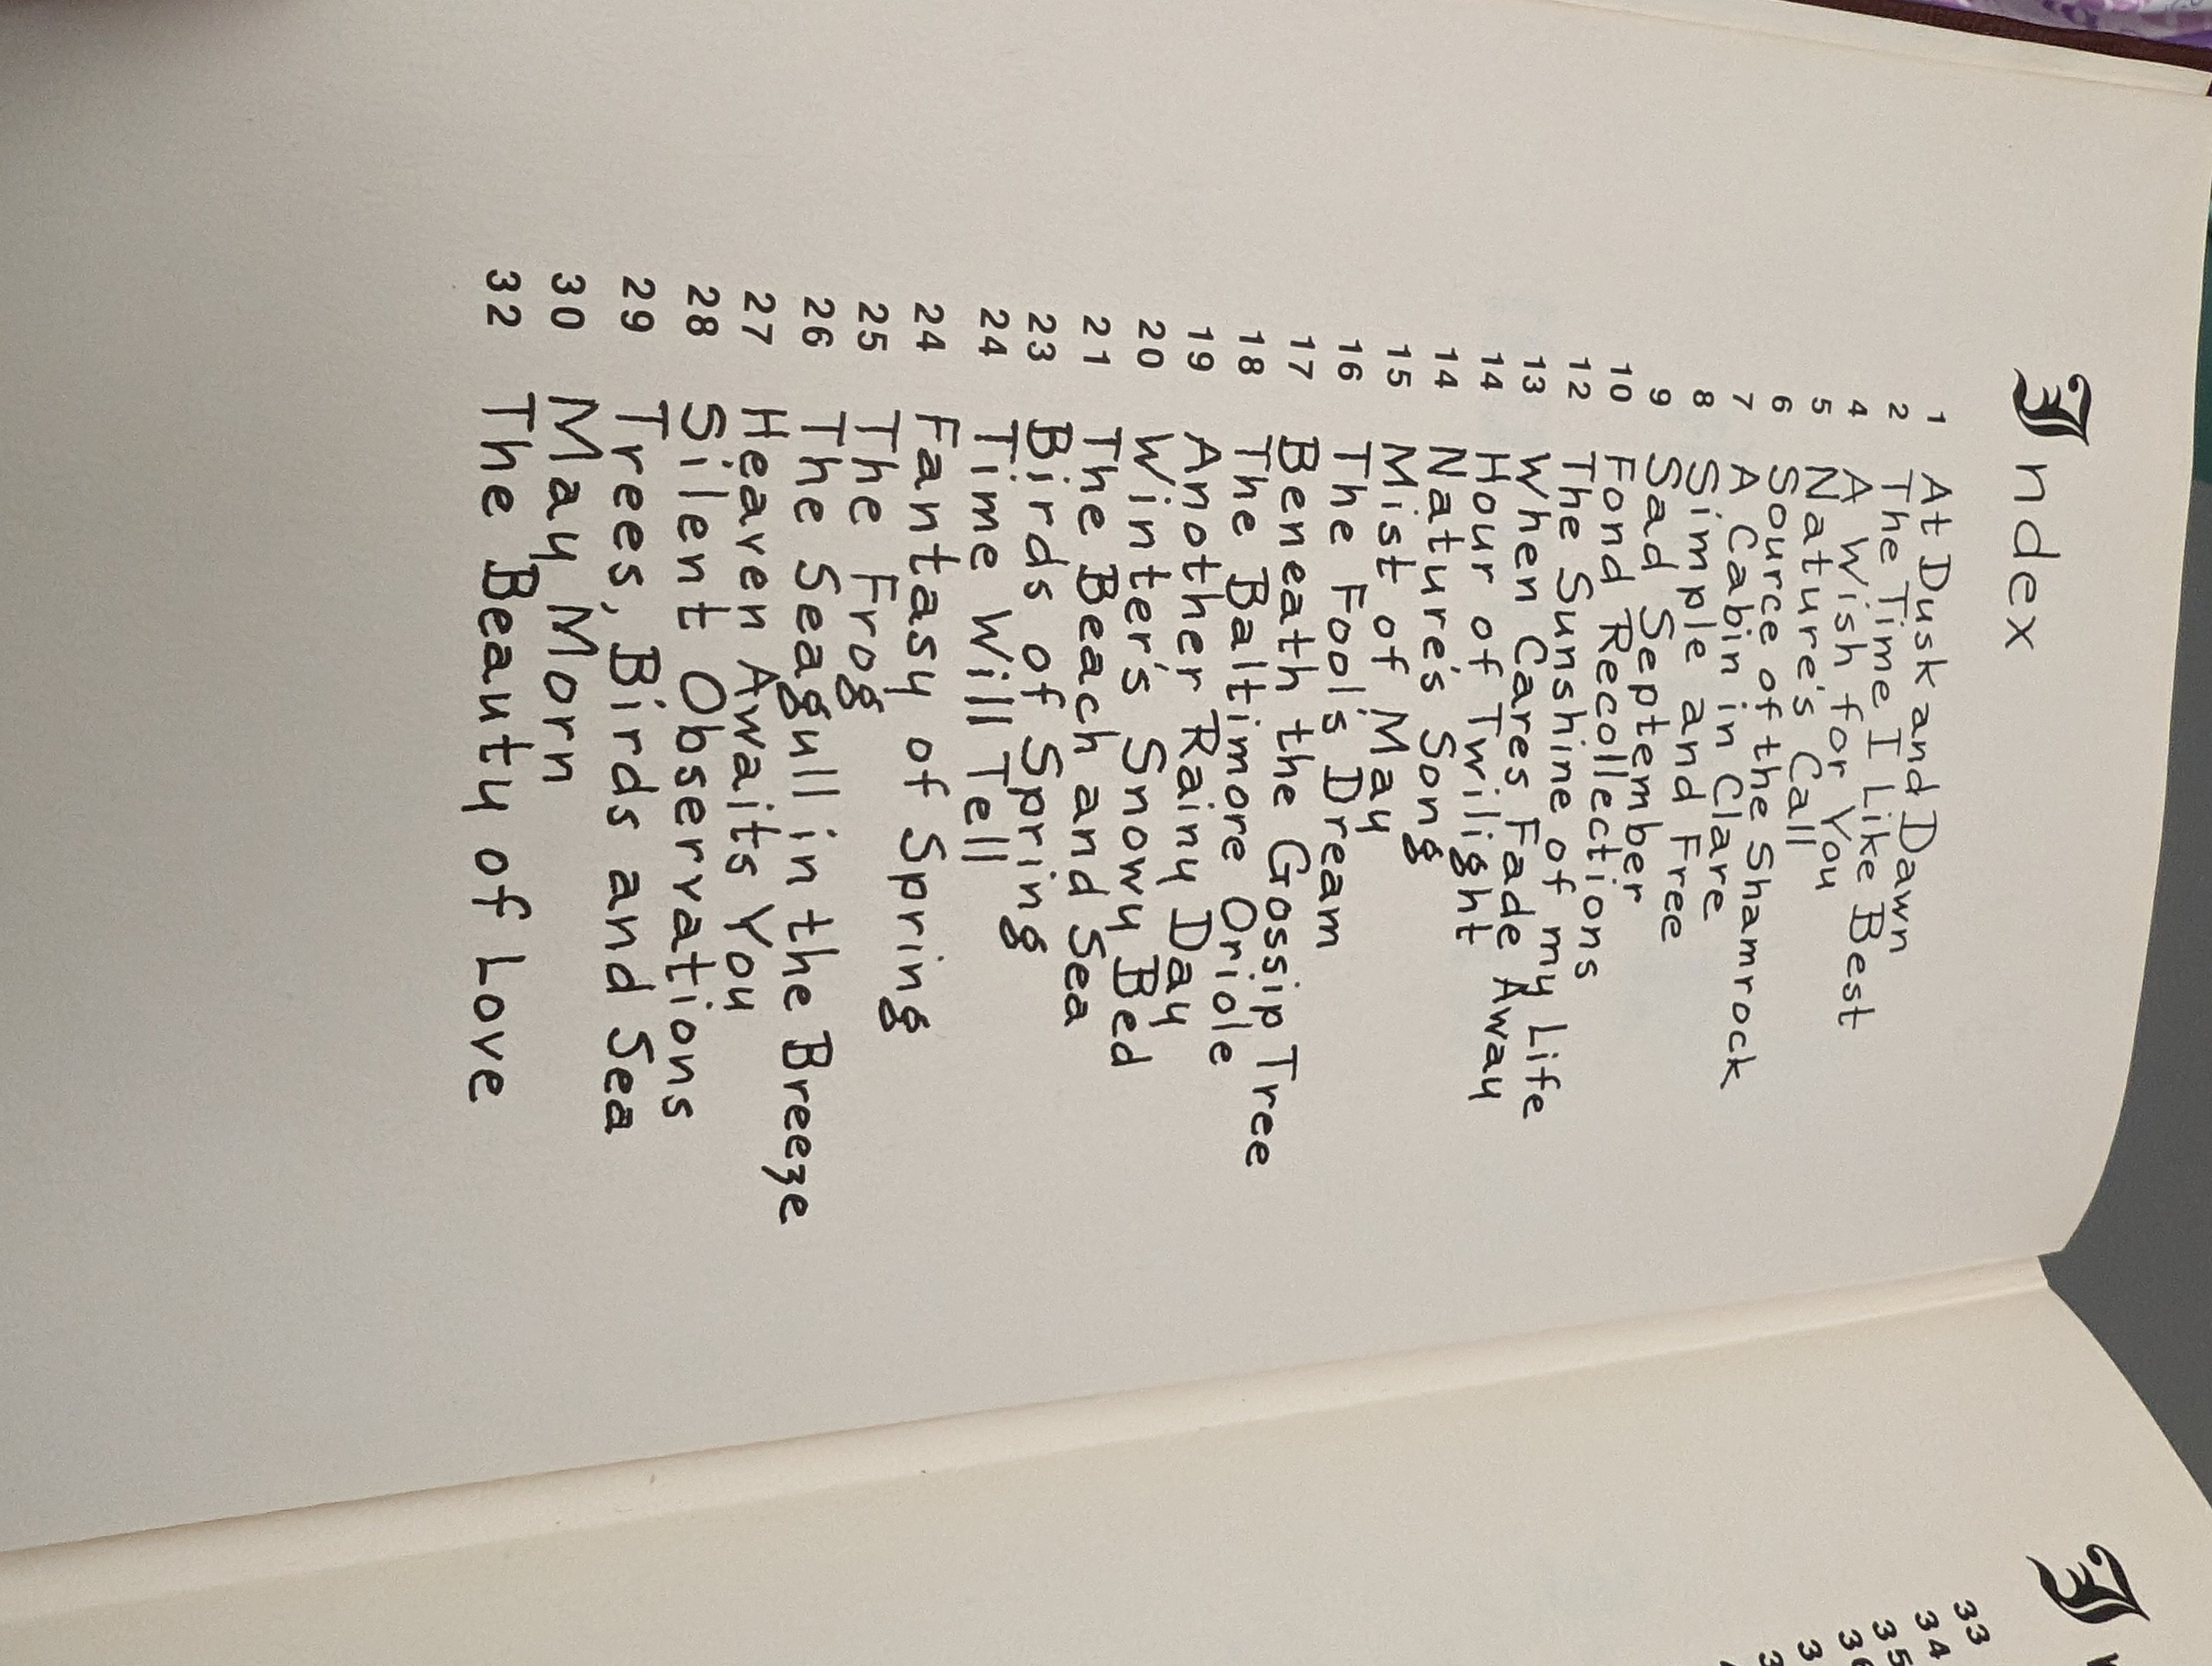 Index
1 At Dusk and Dawn
2 The Time I Like Best
4 A Wish for You
5 Nature's Call
6 Source of the Shamrock
7 A Cabin in Clare
8 Simple and Free
9 Sad September
10 Fond Recollections
12 The Sunshine of my Life
13 When Cares Fade Away
14 Hour of Twilight
14 Nature's Song
15 Mist of May
16 The Fool's Dream
17 Beneath the Gossip Tree
18 The Baltimore Oriole
19 Another Rainy Day
20 Winter's Snowy Bed
21 The Beach and Sea
23 Birds of Spring
24 Time Will Tell
24 Fantasy of Spring
25 The Frog
26 The Seagull in the Breeze
27 Heaven Awaits You
28 Silent Observations
29 Trees, Birds and Sea
30 May Morn
32 The Beauty of Love
I
33
34
35